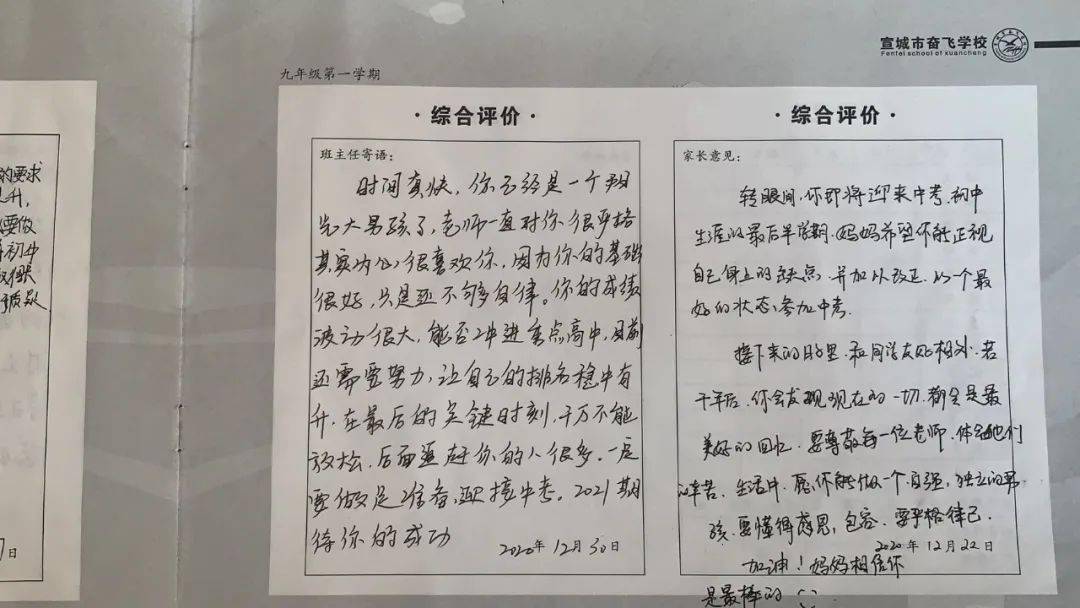 宣城市奋飞学校
Fenfei school of xuancheng
九年级第一学期
的要求
升,
要做
初中
·综合评价·
班主任寄语:
时间真快,你已经是一个阳
光大男孩了,老师一直对你很严格
其实内心很喜欢你,因为你的基础
很好,只是还不够自律。你的成绩
波动很大,能否冲进重点高中,目前
还需要努力,让自己的排名稳中有
升,在最后的关键时刻,千万不能
放松,后面追赶你的人很多,一定
要做足准备,迎接中考。2021期
待你的成功
2020年12月30日
·综合评价·
家长意见:
转眼间,你即将迎来中考,初中
生涯的最后半学期,妈妈希望你能正视
自己身上的缺点,并加以改正,以一个最
好的状态,参加中考.
接下来的日子里,和同学友好相处,若
干年后,你会发现现在的一切,都会是最
美好的回忆,要尊敬每一位老师,体会他们
的辛苦,生活中,愿你能做一个自强,独立的男
孩,要懂得感恩,包容,要严格律己.
2020年12月22日
加油!妈妈相信你
是最棒的
日